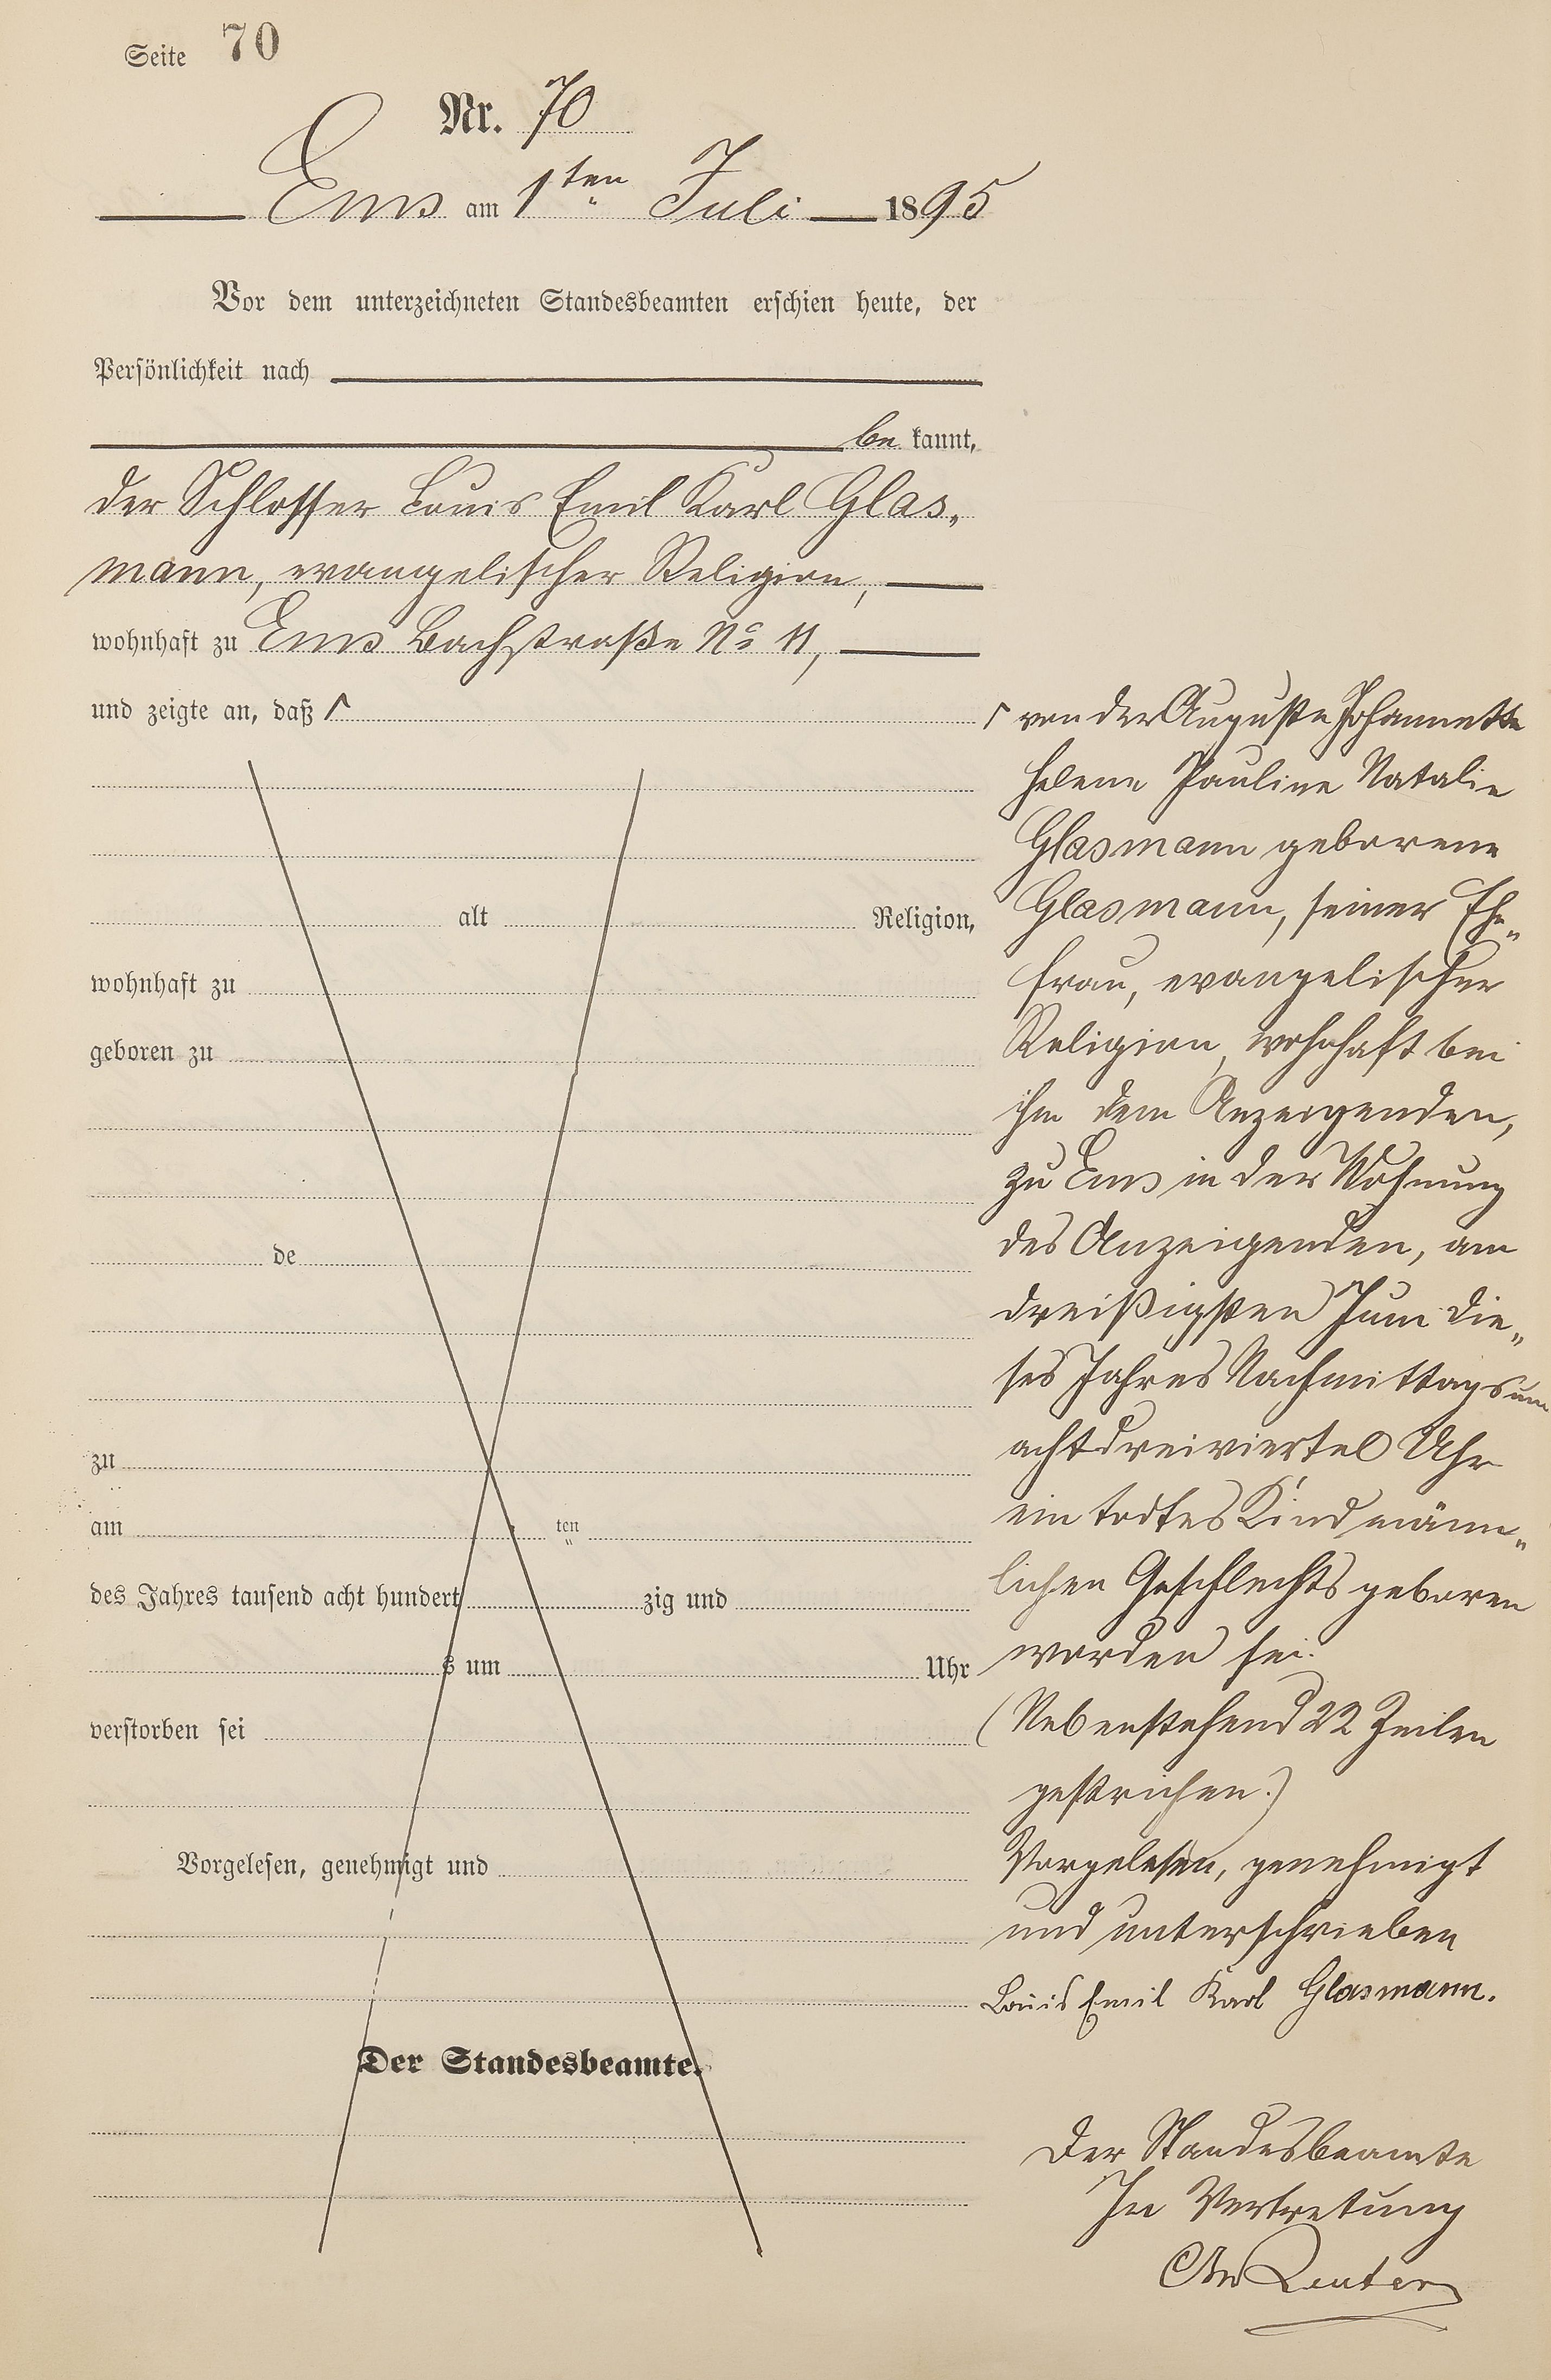 Seite 70
Nr. 70
Ems am 1ten Juli 1895
Vor dem unterzeichneten Standesbeamten erschien heute, der
Persönlichkeit nach
be kannt,
der Schlosser Louis Emil Karl Glas-
mann, evangelischer Religion,
wohnhaft zu Ems Bachstraße No 11,
und zeigte an, daß ┌
alt Religion,
wohnhaft zu
geboren zu
de
zu
am ten
des Jahres tausend acht hundert zig und
s um Uhr
verstorben sei
Vorgelesen, genehmigt und
Der Standesbeamte.
┌ von der Auguste Johannette
Helene Pauline Natalie
Glasmann geborene
Glasmann, seiner Ehe-
frau, evangelischer
Religion, wohnhaft bei
ihm dem Anzeigenden,
zu Ems in der Wohnung
des Anzeigenden, am
dreißigsten Juni die-
ses Jahres Nachmittags um
achtdreiviertel Uhr
ein todtes Kind männ-
lichen Geschlechts geboren
worden sei.
(Nebenstehend 22 Zeilen
gestrichen.)
Vorgelesen, genehmigt
und unterschrieben
Louis Emil Karl Glasmann.
Der Standesbeamte
In Vertretung
Reuter